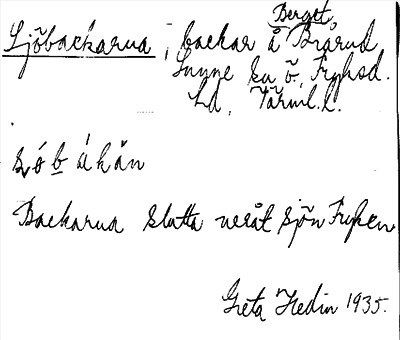 Sjöbackarna, backar å Berget, Brårud
Sunne ku ö. Fryksd.
hd, Värml. l.
Backarna slutta neråt sjön Fryken
Greta Hedin 1935.